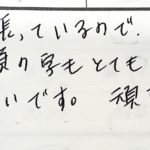 張っているので.
頑の字もとても
いです。 頑